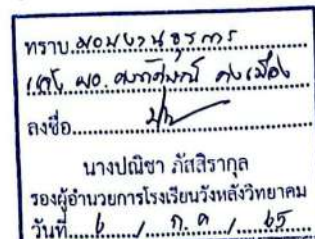 ทราบ มอบงานธุรการ
แจ้ง ผอ.
ลงชื่อ
นางปณิชา ภัสสิรากุล
รองผู้อำนวยการโรงเรียนวังหลังวิทยาคม
วันที่ 6 / ก.ค / 65